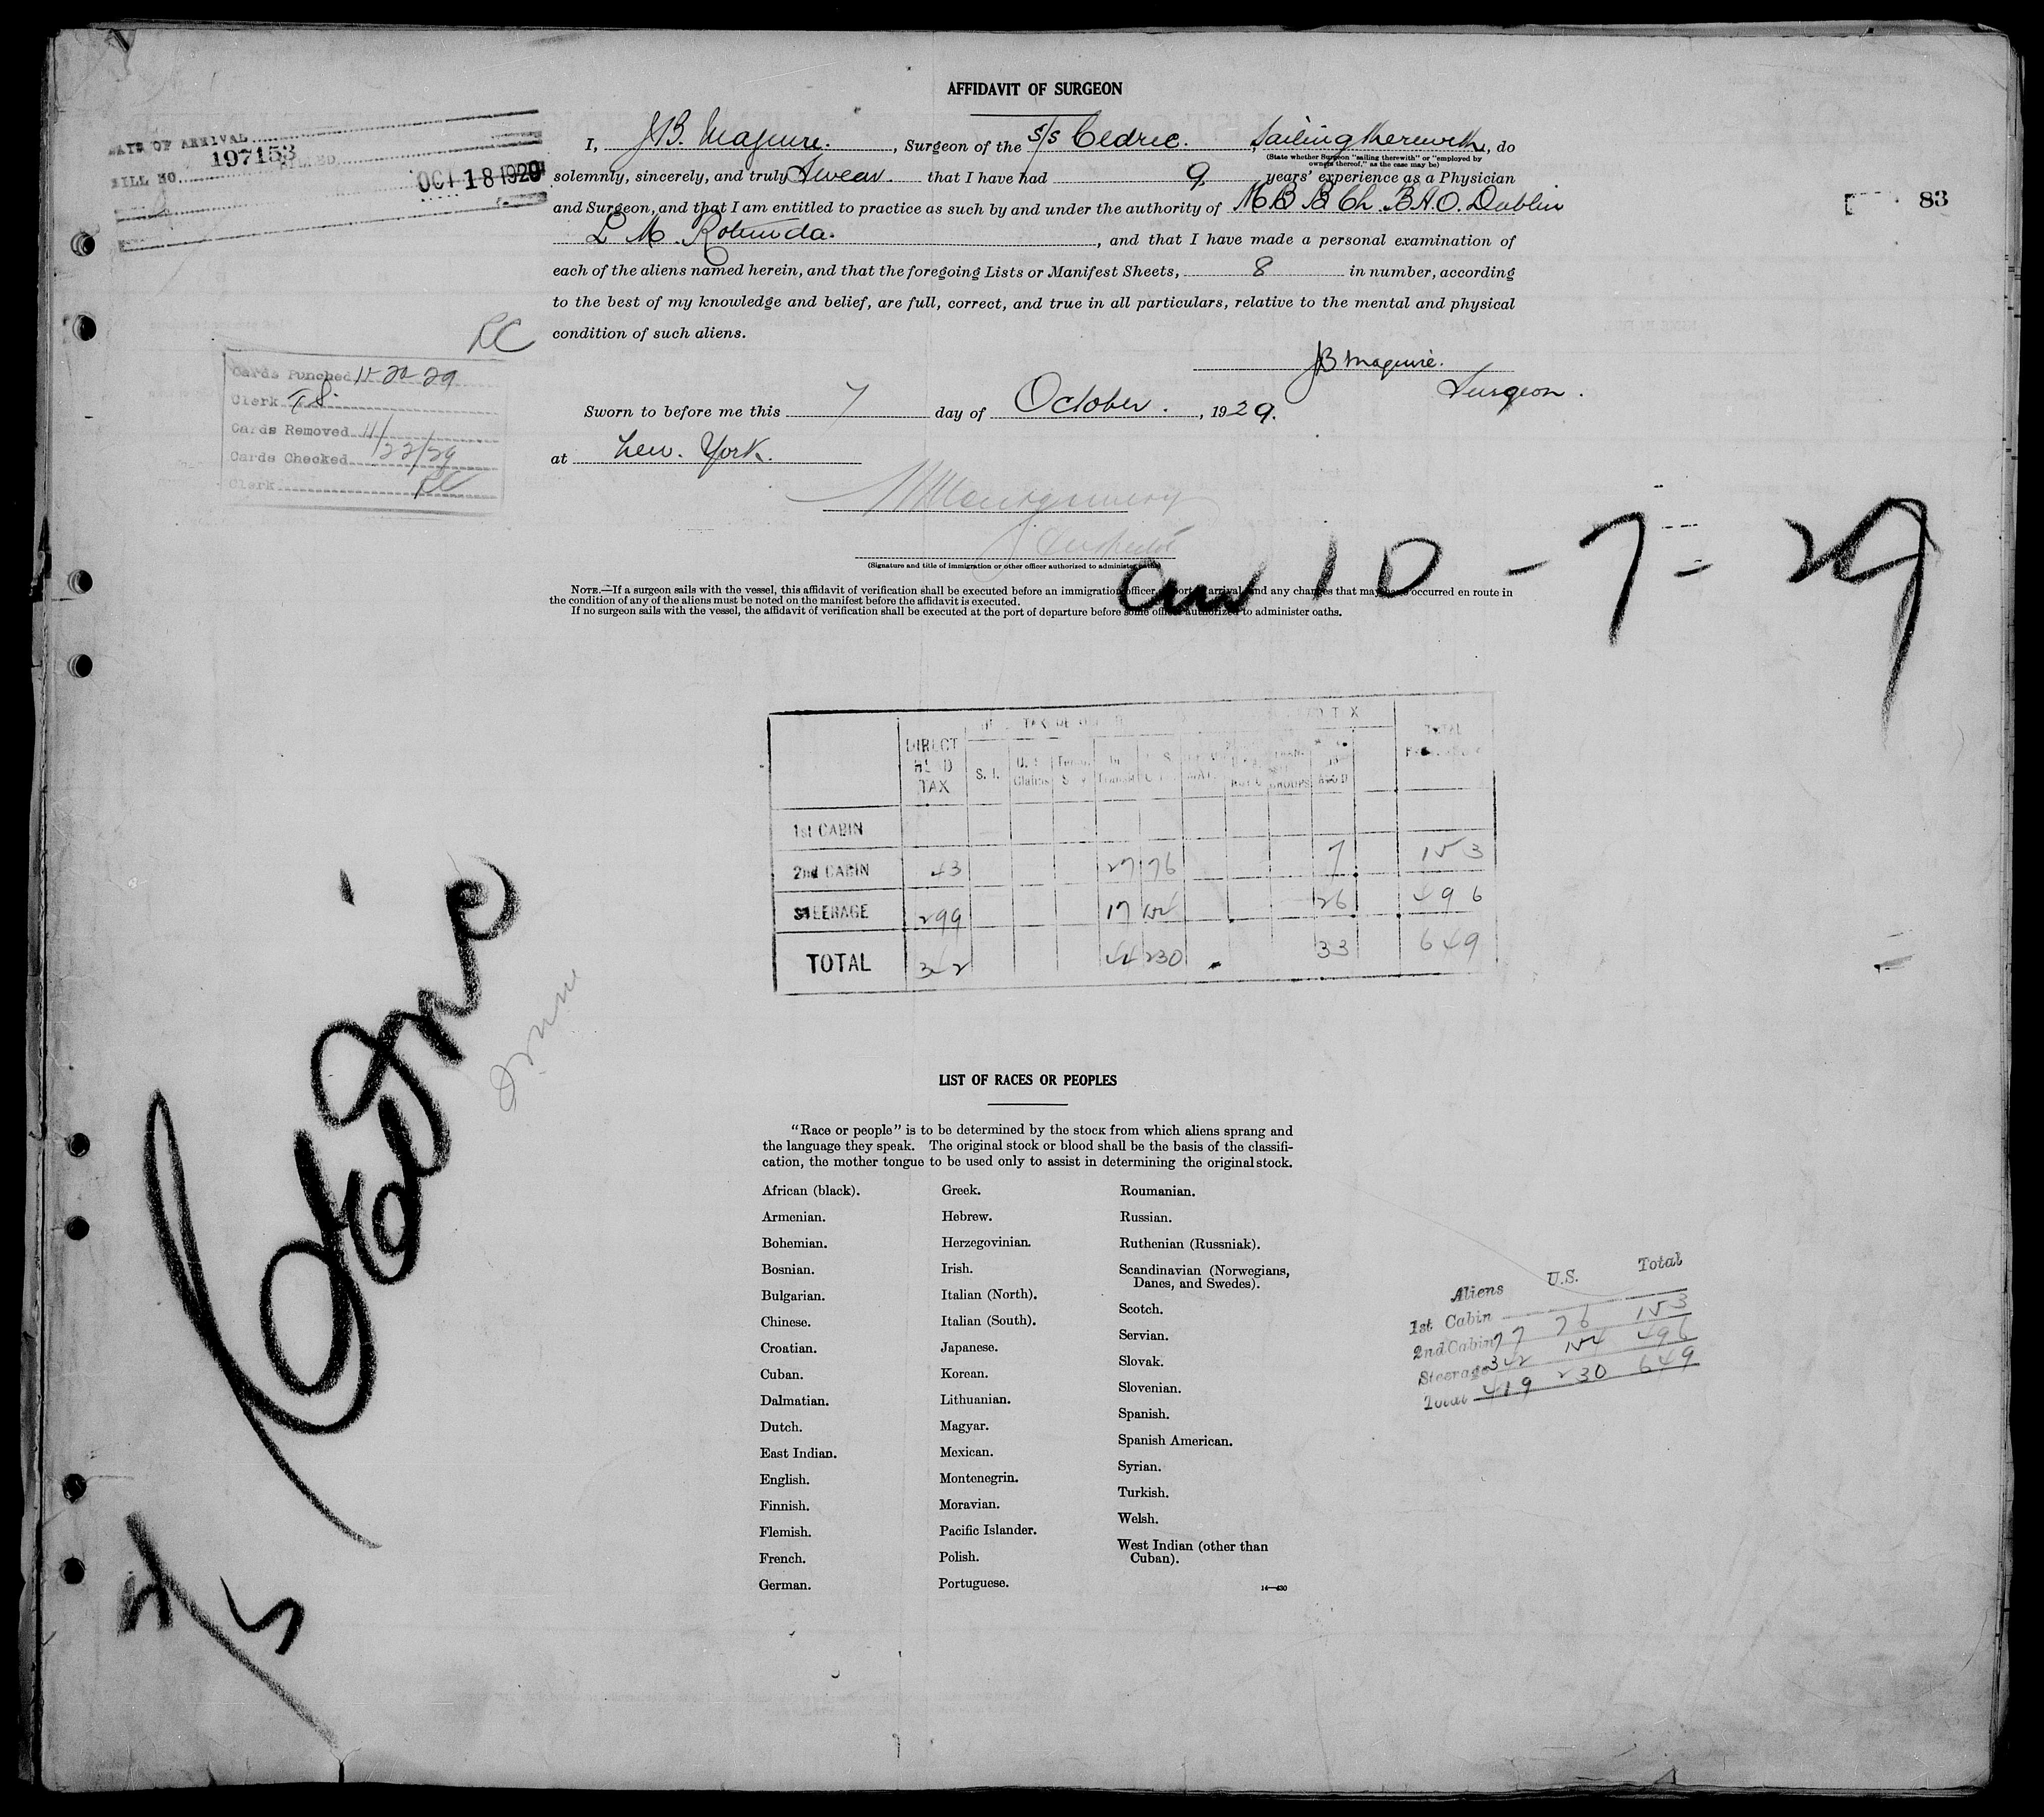 AFFIDAVIT OF SURGEON
DATE OF ARRIVAL
197153
BILL NO. BILLED
OCT 18 1929
83
I, JB. Maguire. , Surgeon of the S/S Cedric. , Sailing therewith, do
(State whether Surgeon "sailing therewith" or "employed by
owners thereof," as the case may be)
solemnly, sincerely, and truly Swear. that I have had 9. years' experience as a Physician
and Surgeon, and that I am entitled to practice as such by and under the authority of M.B. B.Ch. B.A.O. Dublin
L M. Rotunda. , and that I have made a personal examination of
each of the aliens named herein, and that the foregoing Lists or Manifest Sheets, 8 in number, according
to the best of my knowledge and belief, are full, correct, and true in all particulars, relative to the mental and physical
condition of such aliens.
RC
JB Maguire.
Surgeon.
Cards Punched 11-20-29
Clerk T.S.
Cards Removed 11/
Cards Checked 22/29
Clerk RC
Sworn to before me this 7 day of October. , 1929.
at New. York.
Montgomery
(Signature and title of immigration or other officer authorized to administer oaths)
Arr 10 - 7 - 29
NOTE.—If a surgeon sails with the vessel, this affidavit of verification shall be executed before an immigration officer port arrival and any changes that may have occurred en route in
the condition of any of the aliens must be noted on the manifest before the affidavit is executed.
If no surgeon sails with the vessel, the affidavit of verification shall be executed at the port of departure before some officer authorized to administer oaths.
DIRECT HEAD TAX S. I. U. S. Claims In Transit U. S. TOTAL
1st CABIN
2nd CABIN 43 27 76 7 153
STEERAGE 299 17 154 26 496
TOTAL 342 44 230 33 649
Cedric
LIST OF RACES OR PEOPLES
"Race or people" is to be determined by the stock from which aliens sprang and
the language they speak. The original stock or blood shall be the basis of the classifi-
cation, the mother tongue to be used only to assist in determining the original stock.
African (black).
Armenian.
Bohemian.
Bosnian.
Bulgarian.
Chinese.
Croatian.
Cuban.
Dalmatian.
Dutch.
East Indian.
English.
Finnish.
Flemish.
French.
German.
Greek.
Hebrew.
Herzegovinian.
Irish.
Italian (North).
Italian (South).
Japanese.
Korean.
Lithuanian.
Magyar.
Mexican.
Montenegrin.
Moravian.
Pacific Islander.
Polish.
Portuguese.
Roumanian.
Russian.
Ruthenian (Russniak).
Scandinavian (Norwegians,
Danes, and Swedes).
Scotch.
Servian.
Slovak.
Slovenian.
Spanish.
Spanish American.
Syrian.
Turkish.
Welsh.
West Indian (other than
Cuban).
14—430
Aliens U.S. Total
1st Cabin
2nd Cabin 77 76 153
Steerage 342 154 496
Total 419 230 649